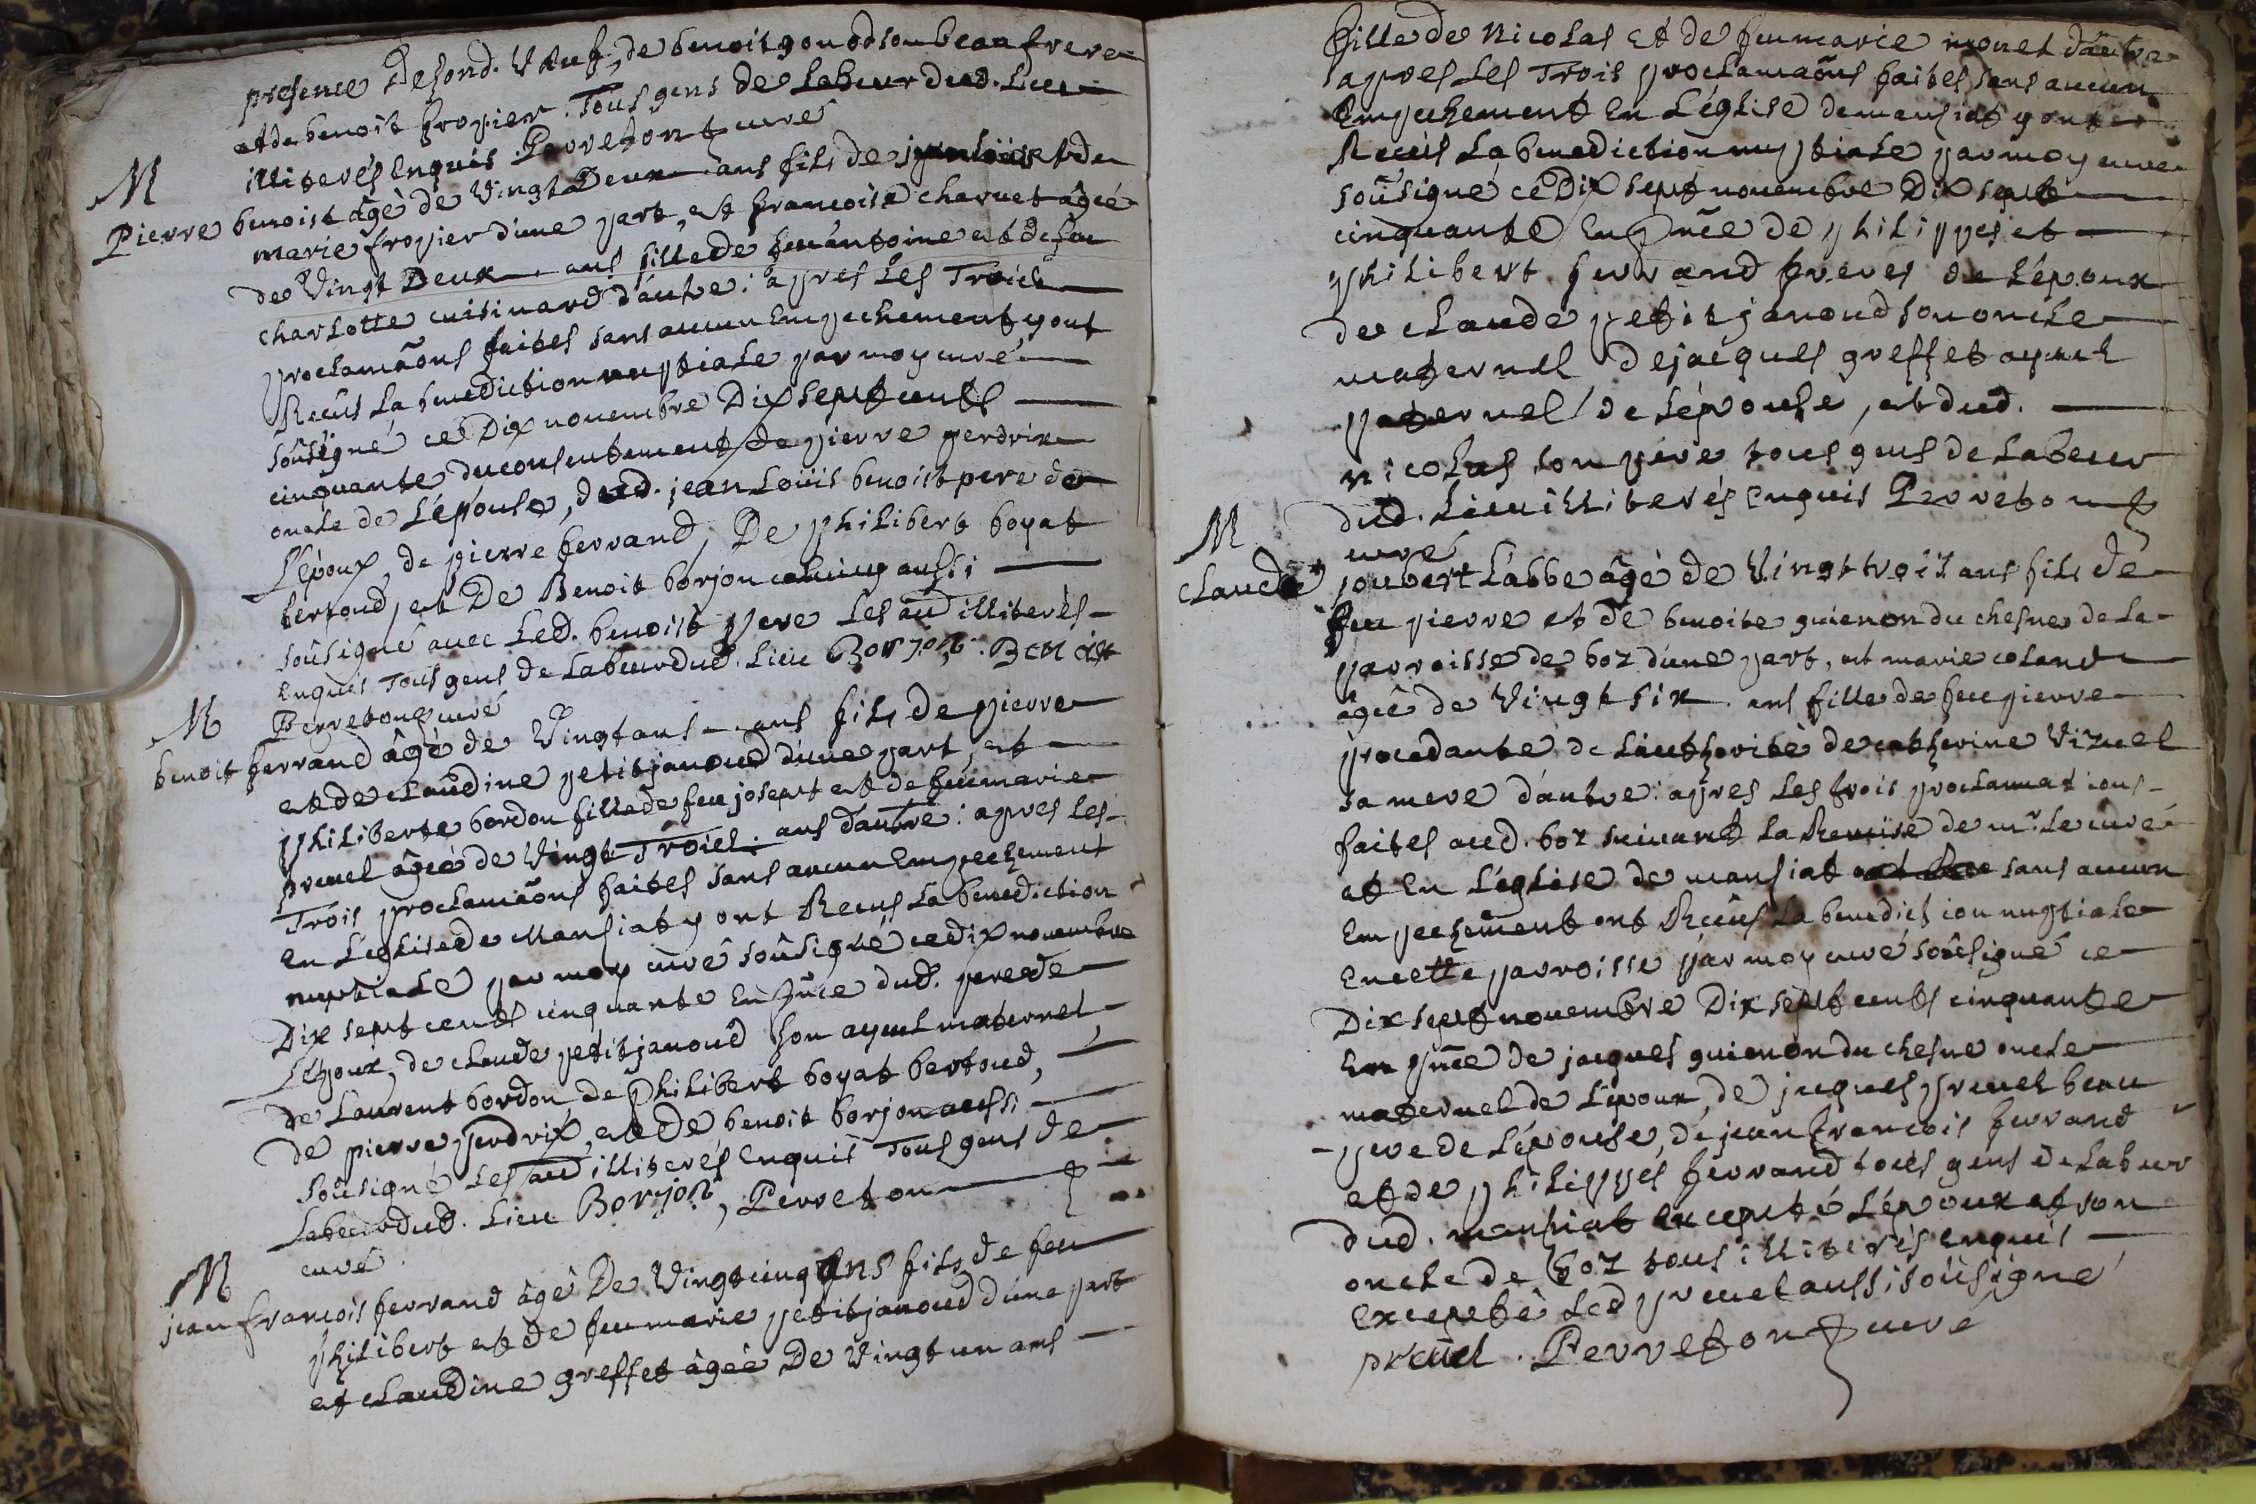 presence De son d. de benoit gondd son beau frere
et de benoit fropier. Tous gens de Labeur dud. Lieu
illiterés enquis Perreton curé
M
Pierre benoist âgé de Vingt Deux ans fils de jean loüis et de
marie fropier d'une part, et francoise charvet âgée
de Vingt Deux ans fille de feu antoine et de feu
charlotte cuisinard d'autre: apres les Trois
proclamãons faites sans aucun Empechement y ont
Receus La benediction nuptiale par moy curé
soûsigné ce Dix novembre Dix sept cents
cinquante du consentement de pierre perdrix
oncle de L'épouse, dud. jean Loüis benoist pere de
L'époux, de pierre ferrand, De philibert boyat
bertoud, et De Benoit borjon aussi
soûsigné avec Led. benoist pere Les au illiterés
enquis Tous gens de Labeur dud. Lieu Borjon. Benoist
Perreton curé
M
benoit ferrand âgé de Vingt ans ans fils de pierre
et de claudine petitjanoud d'une part, et
philiberte bordon fille de feu josept et de feu marie
preuel âgée de Vingt Trois ans d'autre: apres les
Trois proclamãons faites sans aucun Empechement
en L'église de Mansiat y ont Receus La benediction
nuptiale par moy curé soûsigné ce dix novembre
Dix sept cents cinquante En pñce dud. pere de
L'époux, de claude petitjanoud son ayeul maternel,
de Laurent bordon, de Philibert boyat bertoud,
de pierre perdrix, et de benoit borjon aussi
soûsigné Les au illiterés enquis Tous gens de
Labeur dud. Lieu Borjon, Perreton
curé
M
jean francois ferrand âgé De Vingt cinq Ans fils de feu
philibert et de feu marie petitjanoud d'une part
et claudine greffet âgée De Vingt un ans
fille de Nicolas et de feu marie monet d'autre
apres Les Trois proclamaõns faites sans aucun
Empechement en L'église de mansiat y ont
Receus La benediction nuptiale par moy curé
soûsigné ce Dix sept novembre Dix sept
cinquante En pñce de philippes et
philibert ferrand freres de L'époux
de claude petitjanoud son oncle
maternel de jacques greffet ayeul
paternel de L'épouse, et dud.
nicolas son pere tous gens de Labeur
dud. Lieu illiterés enquis Perreton
curé
M
claude joubert L'abbe âgé de Vingt trois ans fils de
feu pierre et de benoite guienon du chesne de La
parroisse de boz d'une part, et marie coland
âgée de Vingt six ans fille de feu pierre
procedante de L'authorité de catherine Vizuel
sa mere d'autre: apres Les trois proclamations
faites aud. boz suivant La Remise de mr. Le curé
et En L'église de mansiat sans aucun
Empechement ont Receus La benediction nuptiale
En cette parroisse par moy curé soûsigné ce
Dix sept novembre Dix sept cents cinquante
En pñce de jacques guienon du chesne oncle
maternel de L'époux, de jacques preuel beau
pere de L'épouse, de jean francois ferrand
et de philippes ferrand tous gens de Labeur
dud. mansiat excepté L'époux et son
oncle de boz tous illiterés enquis
Excepté Led preuel aussi soûsigné
preuel. Perreton curé